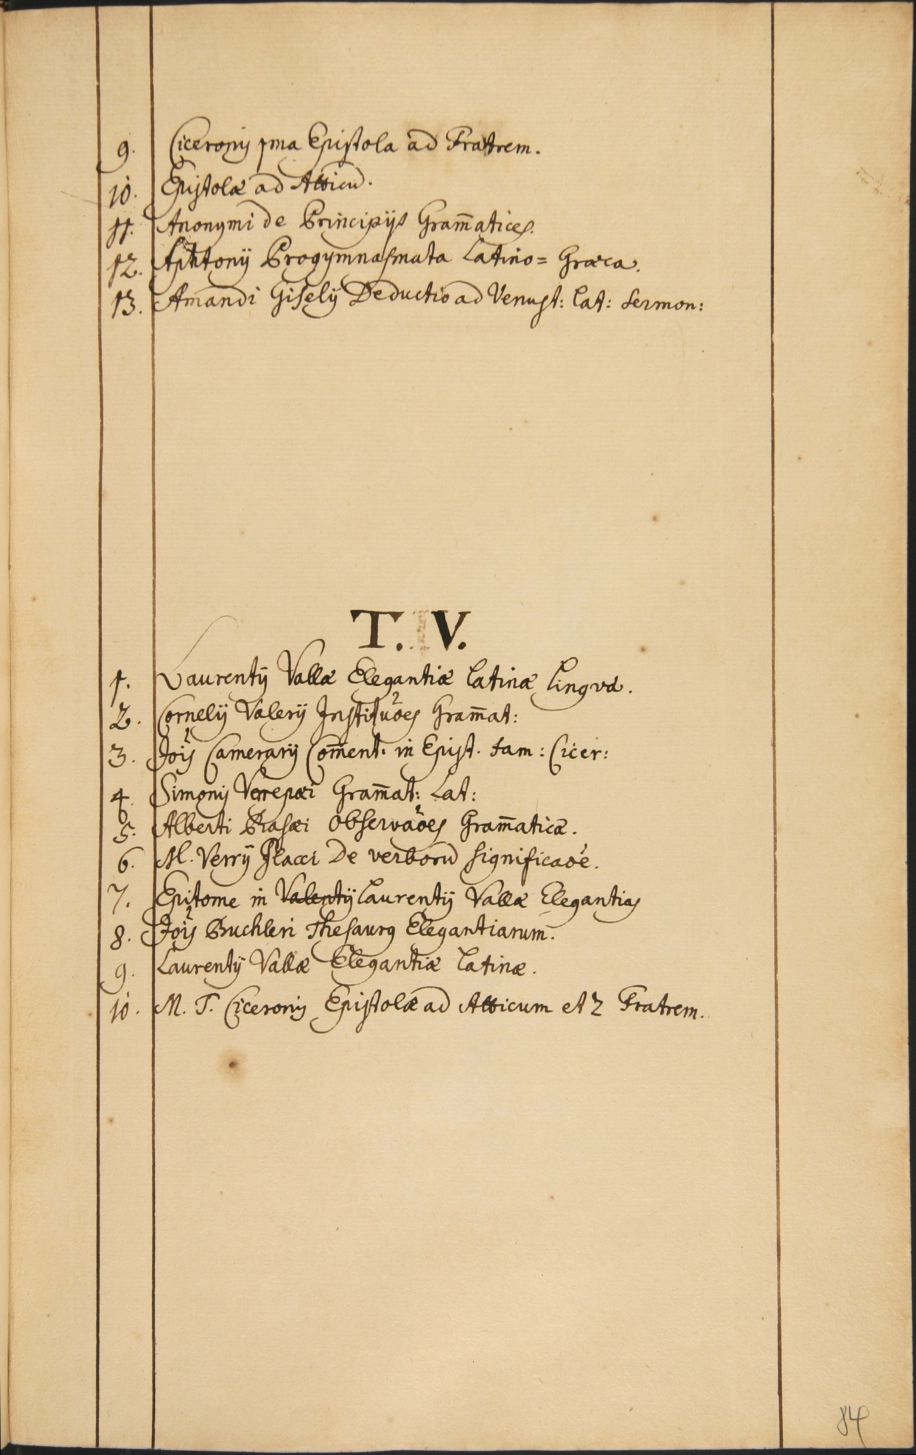 9. Ciceronis pma Epistola ad Frattrem.
10. Epistolæ ad Atticū.
11. Anonymi de Principijs Gram̄atices.
12. Aphtonij Progymnasmata Latino= Græca.
13. Amandi Giselij Deductio ad Venust: Lat: Sermon:
T. V.
1. Laurentij Vallæ Elegantiæ Latinæ Linguæ.
2. Cornelij Valerij Instituōes Gram̄at:
3. Jois Camerarij Com̄ent. in Epist. fam: Cicer:
4. Simonis Verepæi Gram̄at: Lat:
5. Alberti Observaōes Gram̄aticæ.
6. M. Verrij Flacci De verborū significaōe.
7. Epitome in Valentij Laurentij Vallæ Elegantias
8. Jois Buchleri Thesaurus Elegantiarum.
9. Laurentij Vallæ Elegantiæ Latinæ.
10. M. T. Ciceronis Epistolæ ad Atticum et Fratrem.
84